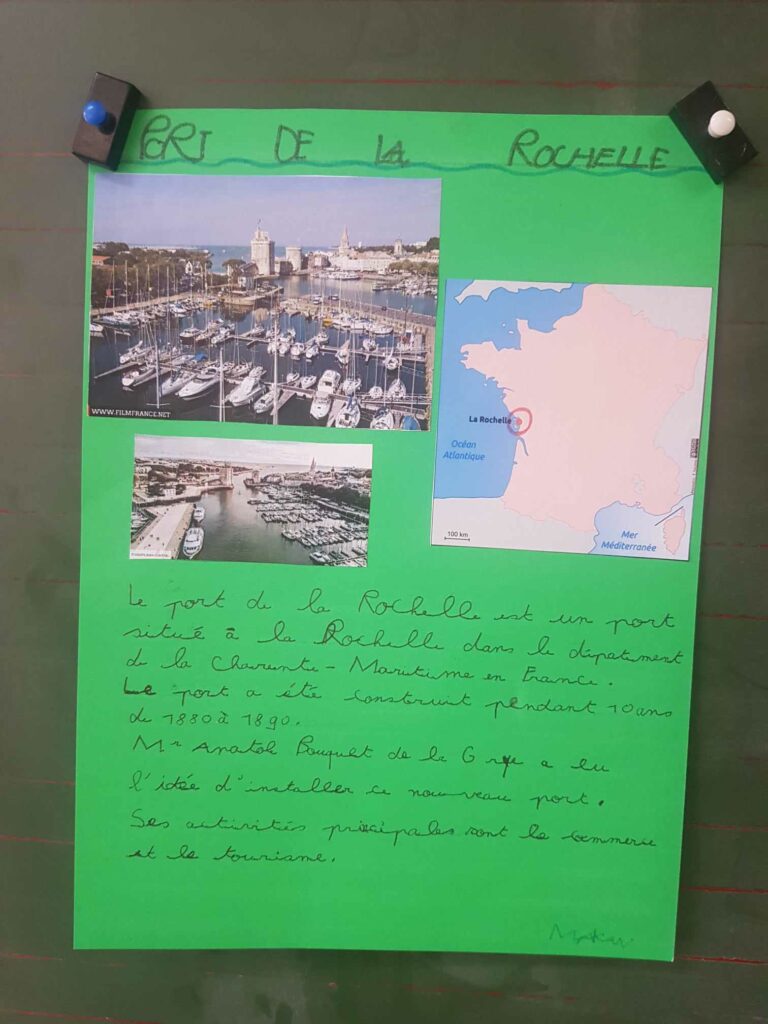 PORT DE LA ROCHELLE
WWW.FILMFRANCE.NET
La Rochelle
Océan
Atlantique
100 km
Mer
Méditerranée
Le port de la Rochelle est un port
situé à la Rochelle dans le département
de la Charente-Maritime en France.
Le port a été construit pendant 10 ans
de 1880 à 1890.
Mr Anatole Bouquet de la Grye a eu
l'idée d'installer ce nouveau port.
Ses activités principales sont le commerce
et le tourisme.